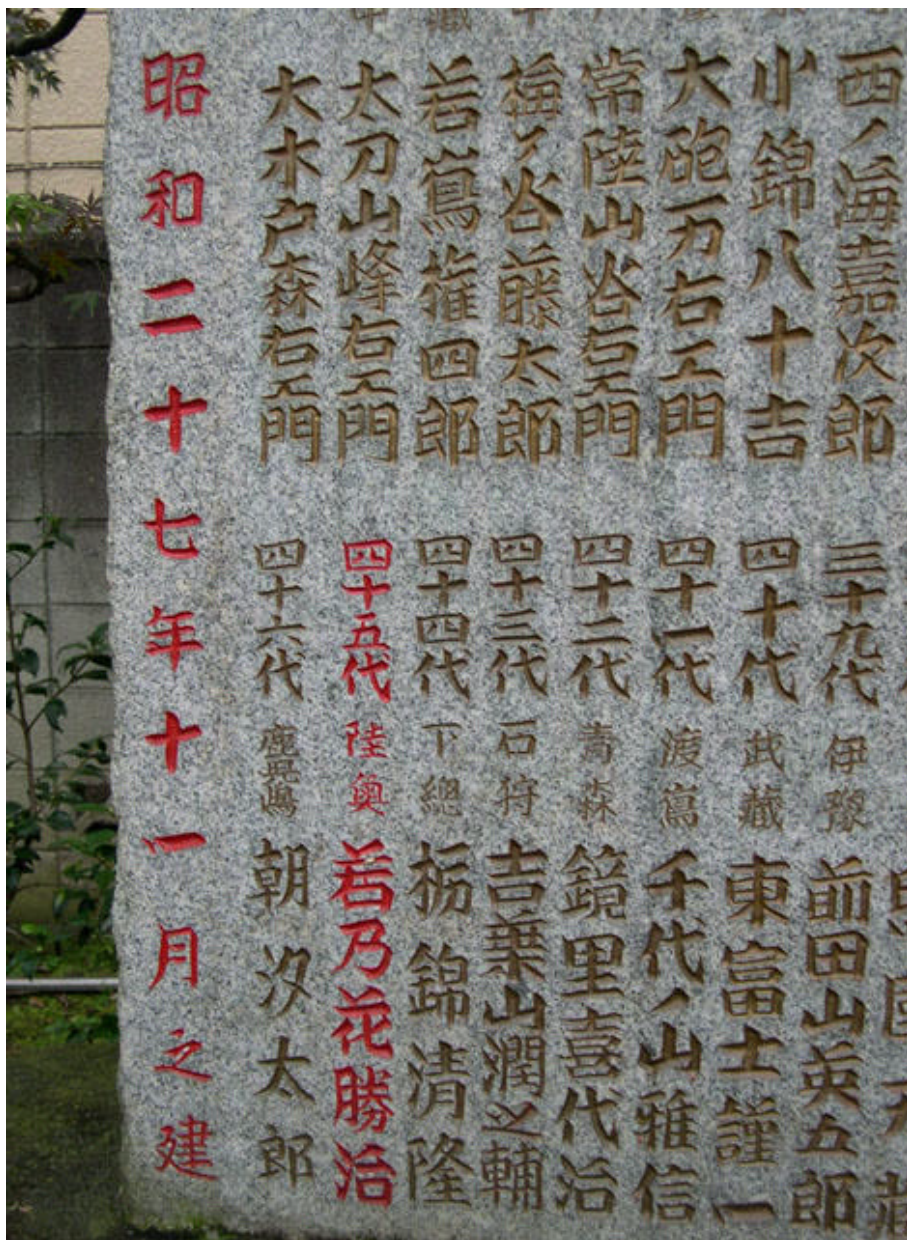 西ノ海嘉次郎
小錦八十吉
大砲万右エ門
常陸山谷右エ門
梅ヶ谷藤太郎
若嶌権四郎
太刀山峰右エ門
大木戸森右エ門
三十九代 伊豫 前田山英五郎
四十代 武藏 東富士謹一
四十一代 渡嶌 千代ノ山雅信
四十二代 青森 鏡里喜代治
四十三代 石狩 吉葉山潤之輔
四十四代 下總 栃錦清隆
四十五代 陸奥 若乃花勝治
四十六代 鹿児嶋 朝汐太郎
昭和二十七年十一月之建